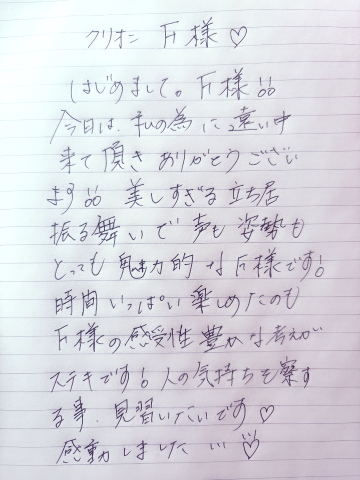 クリオネ F様♡
はじめまして。F様!!
今日は、私の為に遠い中
来て頂きありがとうござい
ます!! 美しすぎる立ち居
振る舞いで声も姿勢も
とっても魅力的なF様です!
時間いっぱい楽しめたのも
F様の感受性豊かな考えが
ステキです!人の気持ちを察す
る事、見習いたいです♡
感動しました...♡